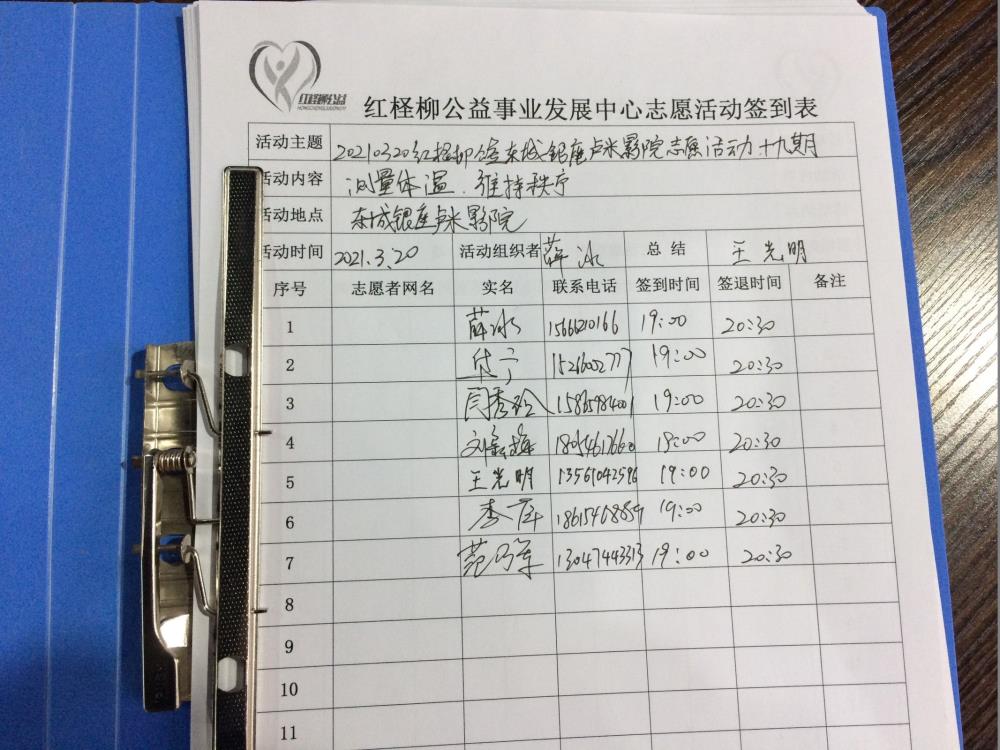 红柽柳公益
HONGCHENGLIUGONGYI
红柽柳公益事业发展中心志愿活动签到表
活动主题 20210320红柽柳公益东城银座卢米影院志愿活动十九期
活动内容 测量体温、维持秩序
活动地点 东城银座卢米影院
活动时间 2021.3.20 活动组织者 薛冰 总结 王光明
序号 志愿者网名 实名 联系电话 签到时间 签退时间 备注
1 薛冰 1566210166 19:00 20:30
2 付宁 1526002777 19:00 20:30
3 闫秀玲 19:00 20:30
4 19:00 20:30
5 王光明 13561042596 19:00 20:30
6 李军 19:00 20:30
7 范乃军 13047443313 19:00 20:30
8
9
10
11